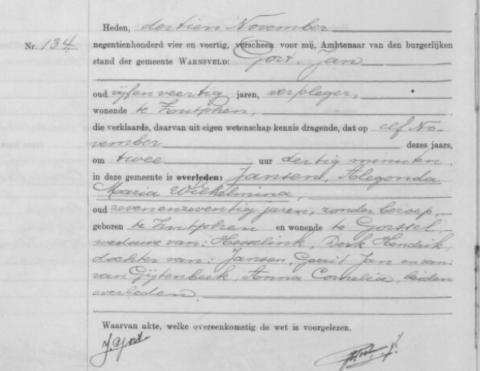 Heden, dertien November
Nr. 134. negentienhonderd vier en veertig, verscheen voor mij, Ambtenaar van den burgerlijken
stand der gemeente WARNSVELD: Jan
oud vijfenveertig jaren, verpleger,
wonende te Zutphen,
die verklaarde, daarvan uit eigen wetenschap kennis dragende, dat op elf No-
vember dezes jaars,
om twee uur dertig minuten
in deze gemeente is overleden: Jansen, Alegonda
Maria Wilhelmina,
oud zevenenzeventig jaren, zonder beroep,
geboren te Zutphen en wonende te Gorssel,
weduwe van: Hesselink, Derk Hendrik,
dochter van: Jansen, Gerrit Jan en van:
van Gijtenbeek, Anna Cornelia, beiden
overleden.
Waarvan akte, welke overeenkomstig de wet is voorgelezen.